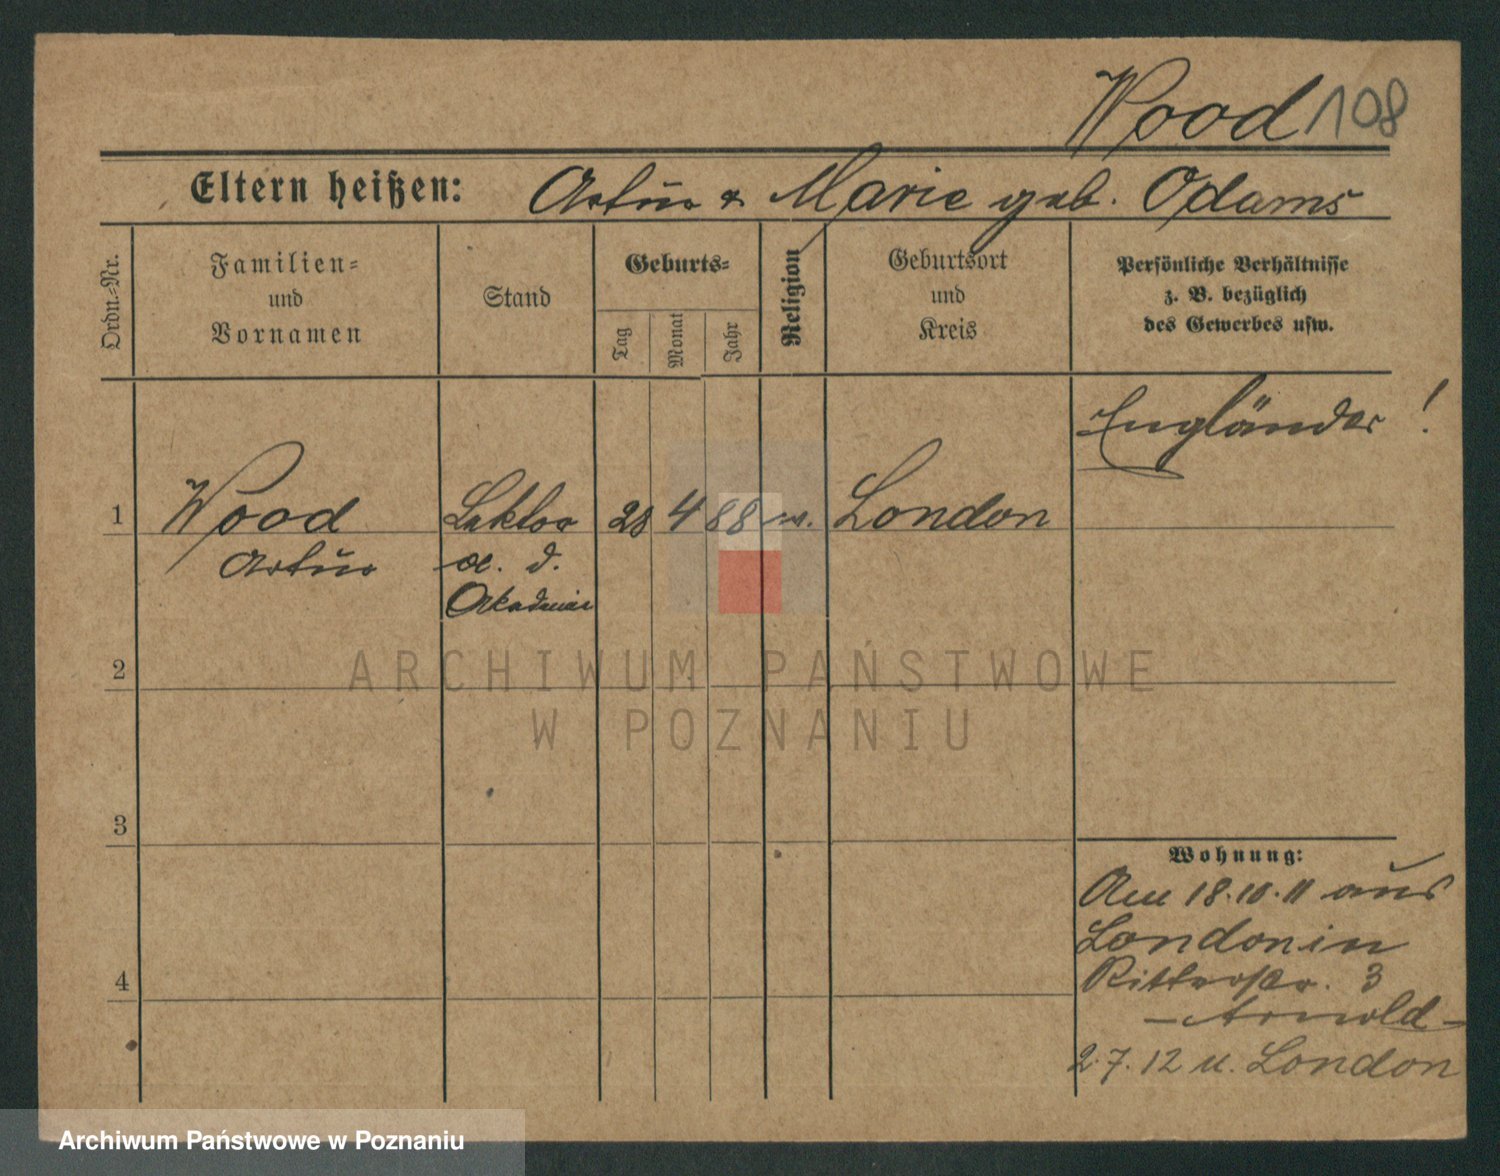 Wood 108
Eltern heißen: Artur & Marie geb. Adams
Ordn.-Nr.
Familien- und Vornamen
Stand
Geburts-
Tag
Monat
Jahr
Religion
Geburtsort und Kreis
Persönliche Verhältnisse
z. B. bezüglich
des Gewerbes usw.
Engländer !
1 Wood Lektor 28 4 88 London
Artur a. d.
Akademie
2
3
4
Wohnung:
Am 18.10.11 aus
London in
Ritterstr. 3
- Arnold -
2.7.12 n. London
ARCHIWUM PAŃSTWOWE
W POZNANIU
Archiwum Państwowe w Poznaniu